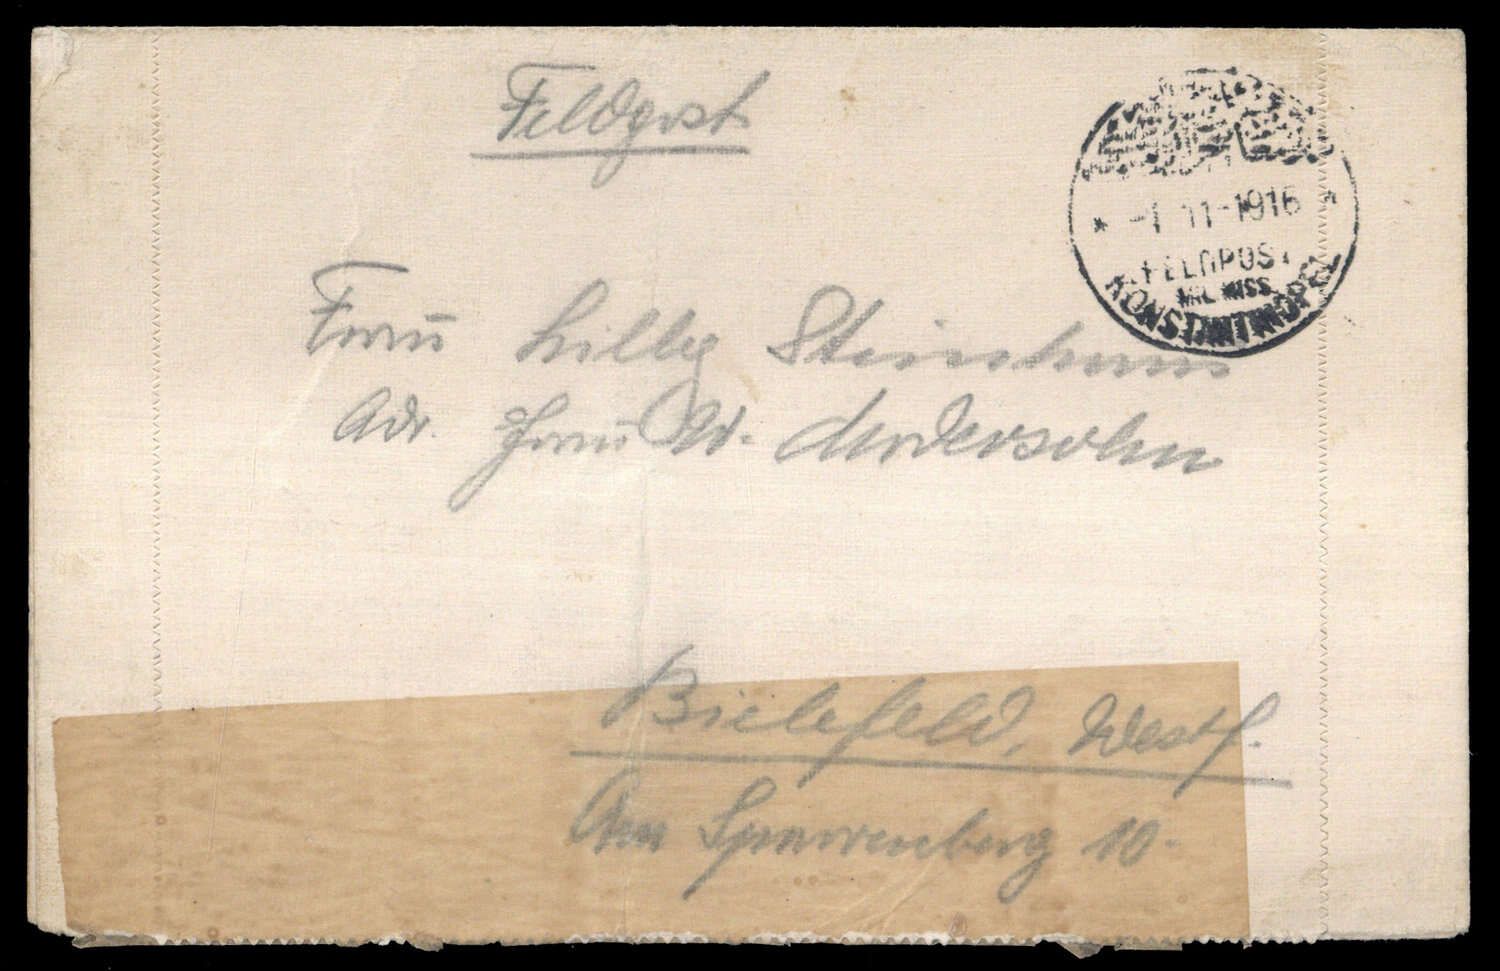 Feldpost
* -1 11-1916 *
FELDPOST
MIL. MISS.
KONSTANTINOPEL
Frau Lilly Steinhaus
Adr. Frau W. Andersohn
Bielefeld, Westf.
Am Sparrenberg 10.